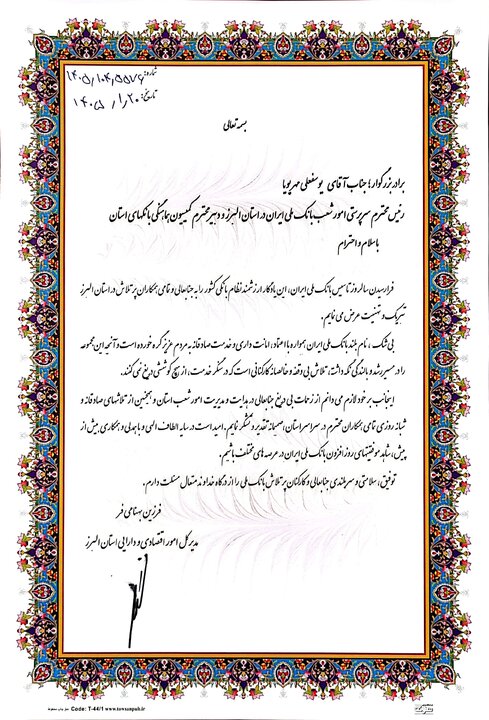 شماره: ۱۴۰۵/۱۰۴/۵۵۷۶
تاریخ: ۱۴۰۵/۱/۲۰
بسمه تعالی
برادر بزرگوار؛ جناب آقای یوسفعلی مهرپویا
رئیس محترم سرپرستی امور شعب بانک ملی ایران در استان البرز و دبیر محترم کمیسیون هماهنگی بانکهای استان
با سلام و احترام
فرا رسیدن سالروز تاسیس بانک ملی ایران، این یادگار ارزشمند نظام بانکی کشور را به جنابعالی و تمامی همکاران پرتلاش در استان البرز
تبریک و تهنیت عرض می نمایم.
بی شک، نام بلند بانک ملی ایران همواره با اعتماد، امانت داری و خدمت صادقانه به مردم عزیز گره خورده است و آنچه این مجموعه
را در مسیر رشد و بالندگی نگه داشته، تلاش بی وقفه و خالصانه کارکنانی است که در سنگر خدمت، از هیچ کوششی دریغ نمی کنند.
اینجانب بر خود لازم می دانم از زحمات بی دریغ جنابعالی در هدایت و مدیریت امور شعب استان و همچنین از تلاشهای صادقانه و
شبانه روزی تمامی همکاران محترم در سراسر استان، صمیمانه تقدیر و تشکر نمایم. امید است در سایه الطاف الهی و با همدلی و همکاری بیش از
پیش، شاهد موفقیتهای روزافزون بانک ملی ایران در عرصه های مختلف باشیم.
توفیق، سلامتی و سربلندی جنابعالی و کارکنان پرتلاش بانک ملی را از درگاه خداوند متعال مسئلت دارم.
فرزین بهنامی فر
مدیر کل امور اقتصادی و دارایی استان البرز
Code: T-44/1 www.tavsanpub.ir